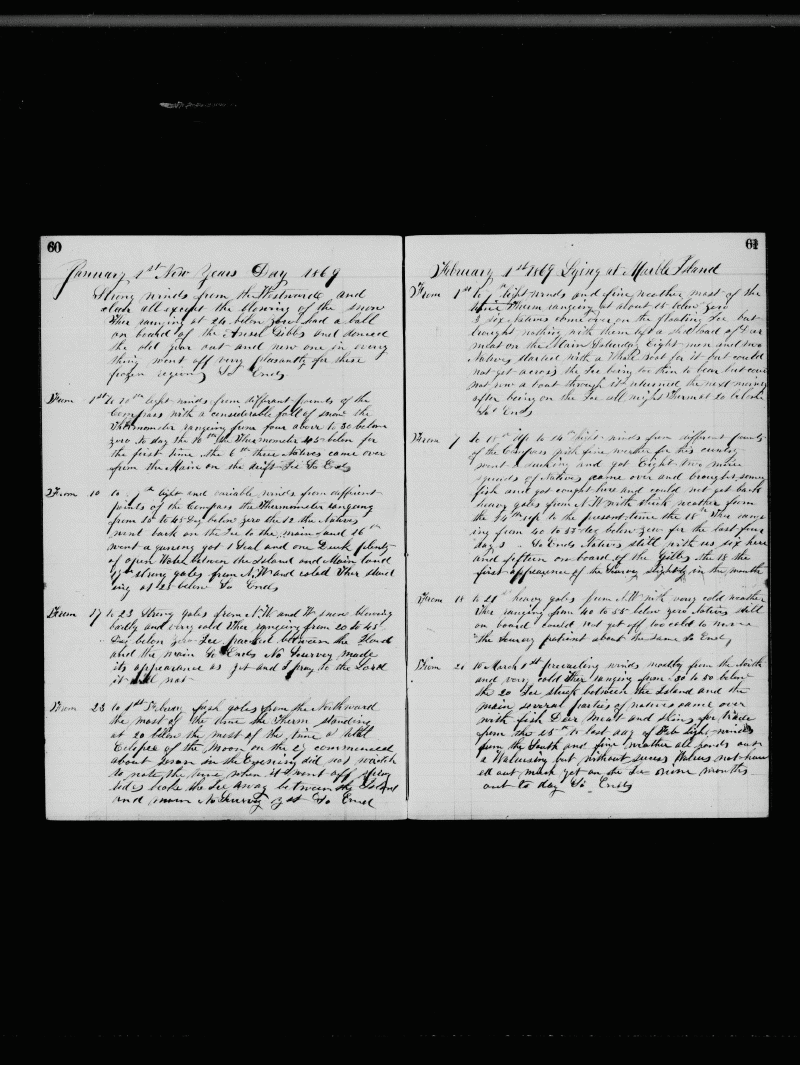 60
January 1st New Years Day 1869
Strong winds from the Westward and
clear all except the blowing of the snow
Ther ranging at 24 below zero had a ball
on board of the Ansel Gibbs and danced
the old year out and new one in every
thing went off very pleasantly for these
frozen regions So Ends
From 1st to 10th light winds from different points of the
Compass with a considerable fall of snow the
Thermometer ranging from four above to 30 below
zero to day the 10th the Thermometer 45 below for
the first time the 6th three Natives came over
from the Main on the drift Ice So Ends
From 10 to th light and variable winds from different
points of the Compass the Thermometer ranging
from 10 to 45 Deg below zero the 12 the Natives
went back on the Ice to the main and 16th
went a guning got 1 Seal and one Duck plenty
of open Water between the Island and Main land
17th strong gales from N.W and cold Ther stand
ing at 25 below So Ends
From 17 to 23 Strong gales from N.W and W snow blowing
badly and very cold Ther ranging from 20 to 45
Deg below zero Ice packed between the Island
and the main So Ends No Scurvey made
its appearance as yet and I pray to the Lord
it will not
From 23 to 1st February fresh gales from the Northward
the most of the time the Therm standing
at 20 below the most of the time a total
Eclipse of the Moon on the 27 commenced
about seven in the Evening did not watch
to note the time when it went off spring
tides broke the Ice away between the Island
and main No Scurvy yet So Ends
61
February 1st 1869 Lying at Marble Island
From 1st to 7th light winds and fine weather most of the
time Therm ranging at about 15 below zero
2 six Natives came over on the floating Ice but
brought nothing with them left a sled load of Deer
meat on the Main Saturday Eight men and two
Natives started with a Whale boat for it but could
not get across the Ice being too thin to bear but could
not row a boat through it returned the next morning
after being on the Ice all night Thermst 20 below
So Ends
From 7 to 18th Up to 14th light winds from different points
of the Compass with fine weather for this country
went a ducking and got Eight two more
squads of Natives came over and brought some
fish and got caught here and could not get back
heavy gales from N.W with thick weather from
the 14th up to the present time the 18th Ther rang
ing from 40 to 55 deg below zero for the last four
days So Ends Natives still with us six here
and fifteen on board of the Gibbs the 18 the
first appearance of the Scurvy slightly in the mouth
From 18 to 21st heavy gales from N.W with very cold weather
Ther ranging from 40 to 55 below zero Natives still
on board could not get off too cold to move
the Scurvy patient about the same So Ends
From 21 to March 1st prevailing winds mostly from the North
and very cold Ther ranging from 30 to 50 below
the 20 Ice stuck between the Island and the
main several parties of natives came over
with fish Deer Meat and skins for trade
from the 25th to last day of Feb light winds
from the South and fine weather all hands out
a Walrusing but without sucess Walrus not haw
ed out much yet on the Ice Nine months
out to day So Ends